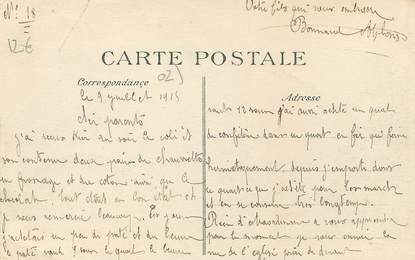 N° 18
12 €
02)
Votre fils qui vous embrasse
Bonnaud Alphonse
CARTE POSTALE
Correspondance
Adresse
le 9 juillet 1915
parents
j'ai reçu hier au soir le colis il
contenu deux paires de chaussettes
un fromage et du coton ainsi que le
chocolat, tout était en bon état et
je vous remercie beaucoup.
j'achèterai un peu de paté et du beurre
le paté vaut le quart le beurre
vaut 12 sous j'ai aussi acheté un quart
de confiture dans un quart en fer qui ferme
hermétiquement, depuis j'emporte dans
ce quart ce que j'achète pour les marches
et on se conserve très longtemps.
Rien d'extraordinaire a vous apprendre
pour le moment je vous envoie la
rue de l'église près de